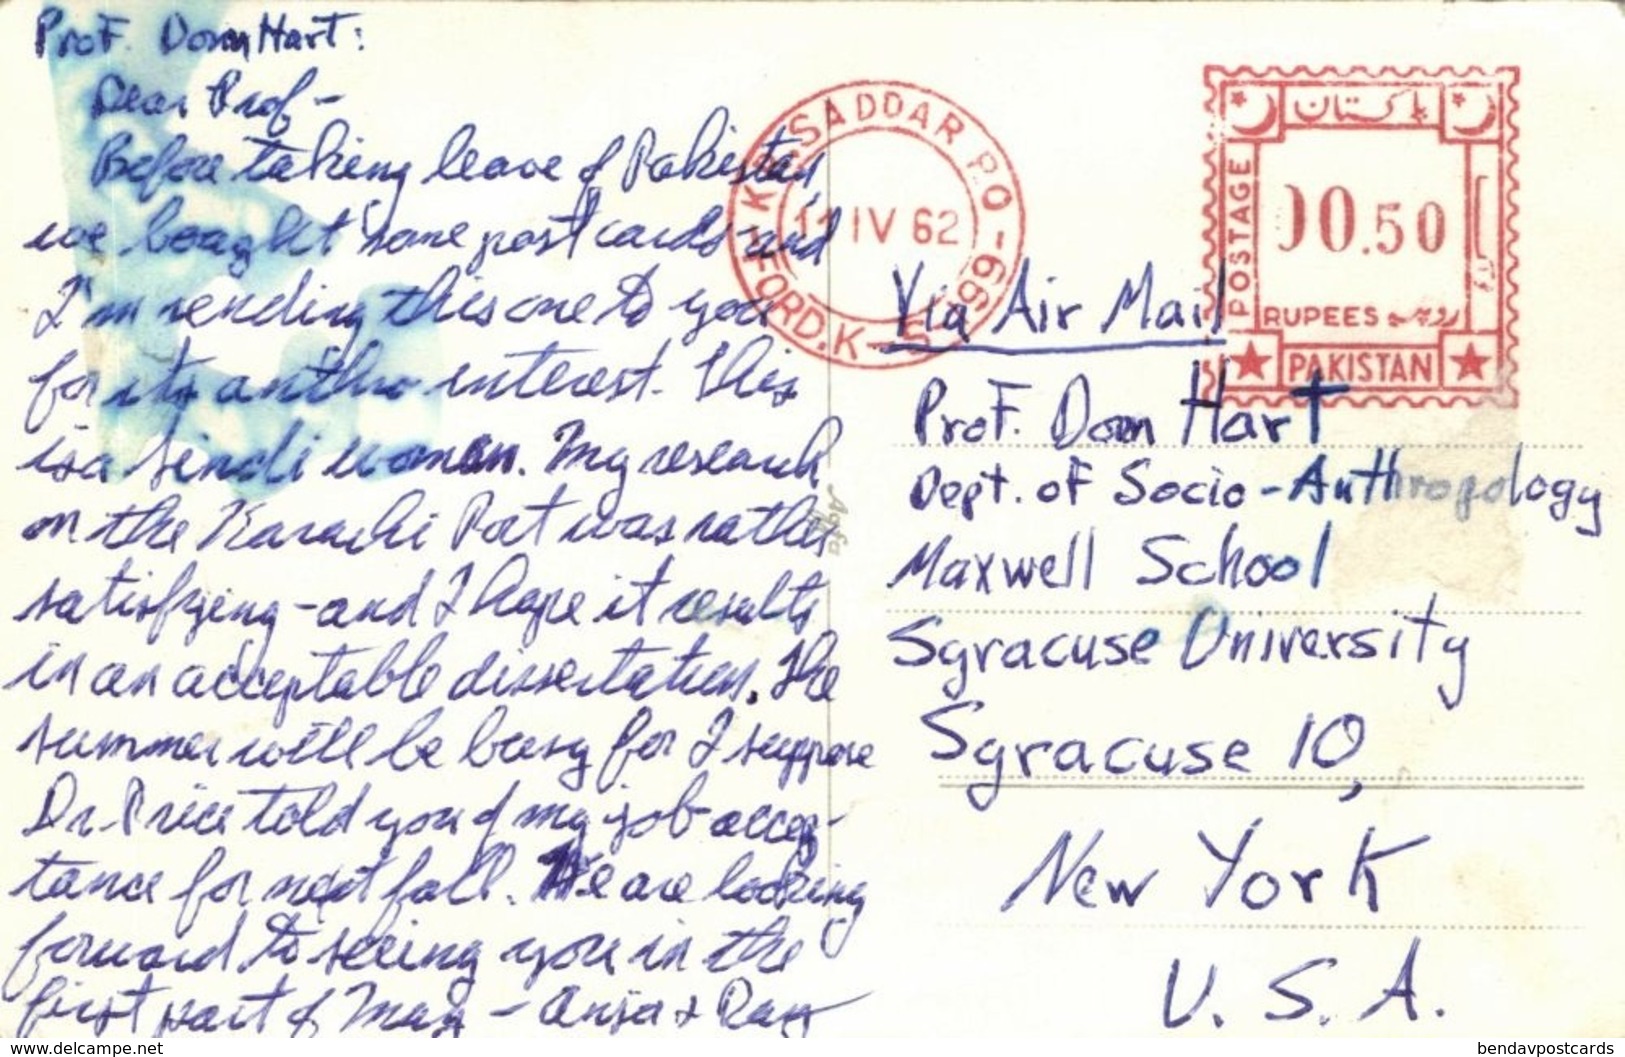 Prof. Dom Hart:
Dear Prof -
Before taking leave of Pakistan,
we bought some postcards and
I'm sending this one to you
for its anthro interest. This
is a Sindi woman. My research
on the Karachi Port was rather
satisfying - and I hope it results
in an acceptable dissertation. The
summer will be busy for I suppose
Dr. Price told you of my job accep-
tance for next fall. We are looking
forward to seeing you in the
first part of May - Anja & Ray
SADDAR P.O - 69
11 IV 62
FORD.K
پاکستان
POSTAGE
00.50
RUPEES
PAKISTAN
Via Air Mail
Prof. Dom Hart
Dept. of Socio-Anthropology
Maxwell School
Syracuse University
Syracuse 10,
New York
U. S. A.
Agfa
www.delcampe.net
bendavpostcards